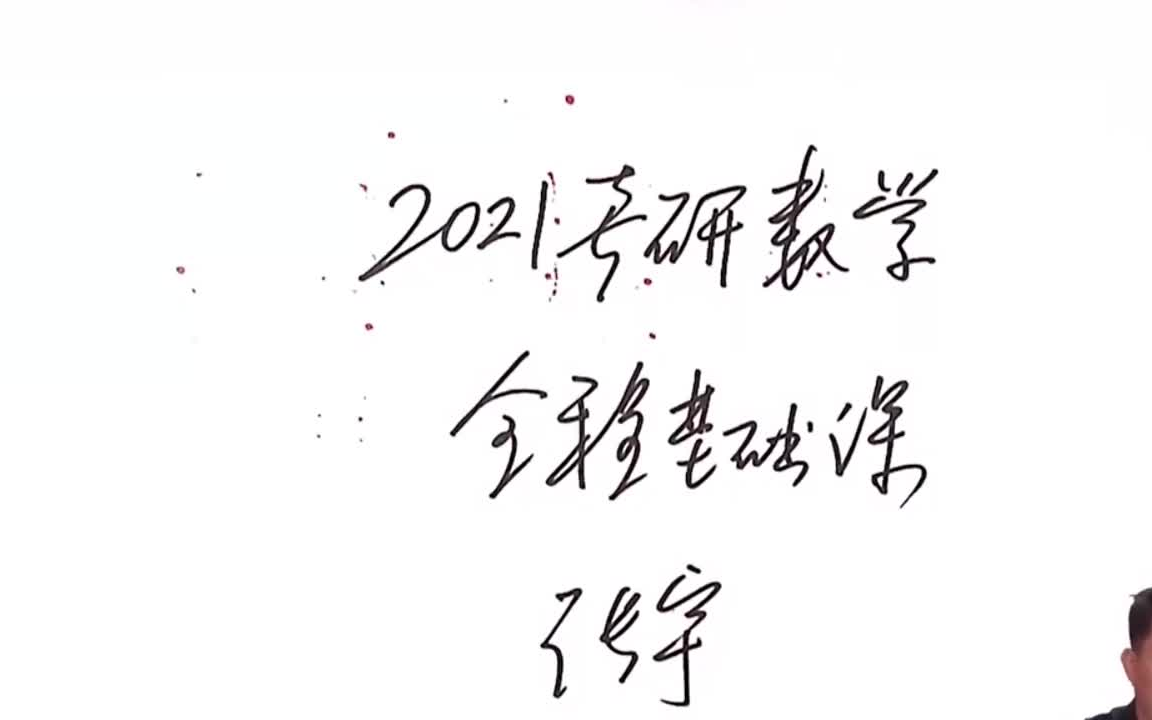 2021考研数学
全程基础课
张宇